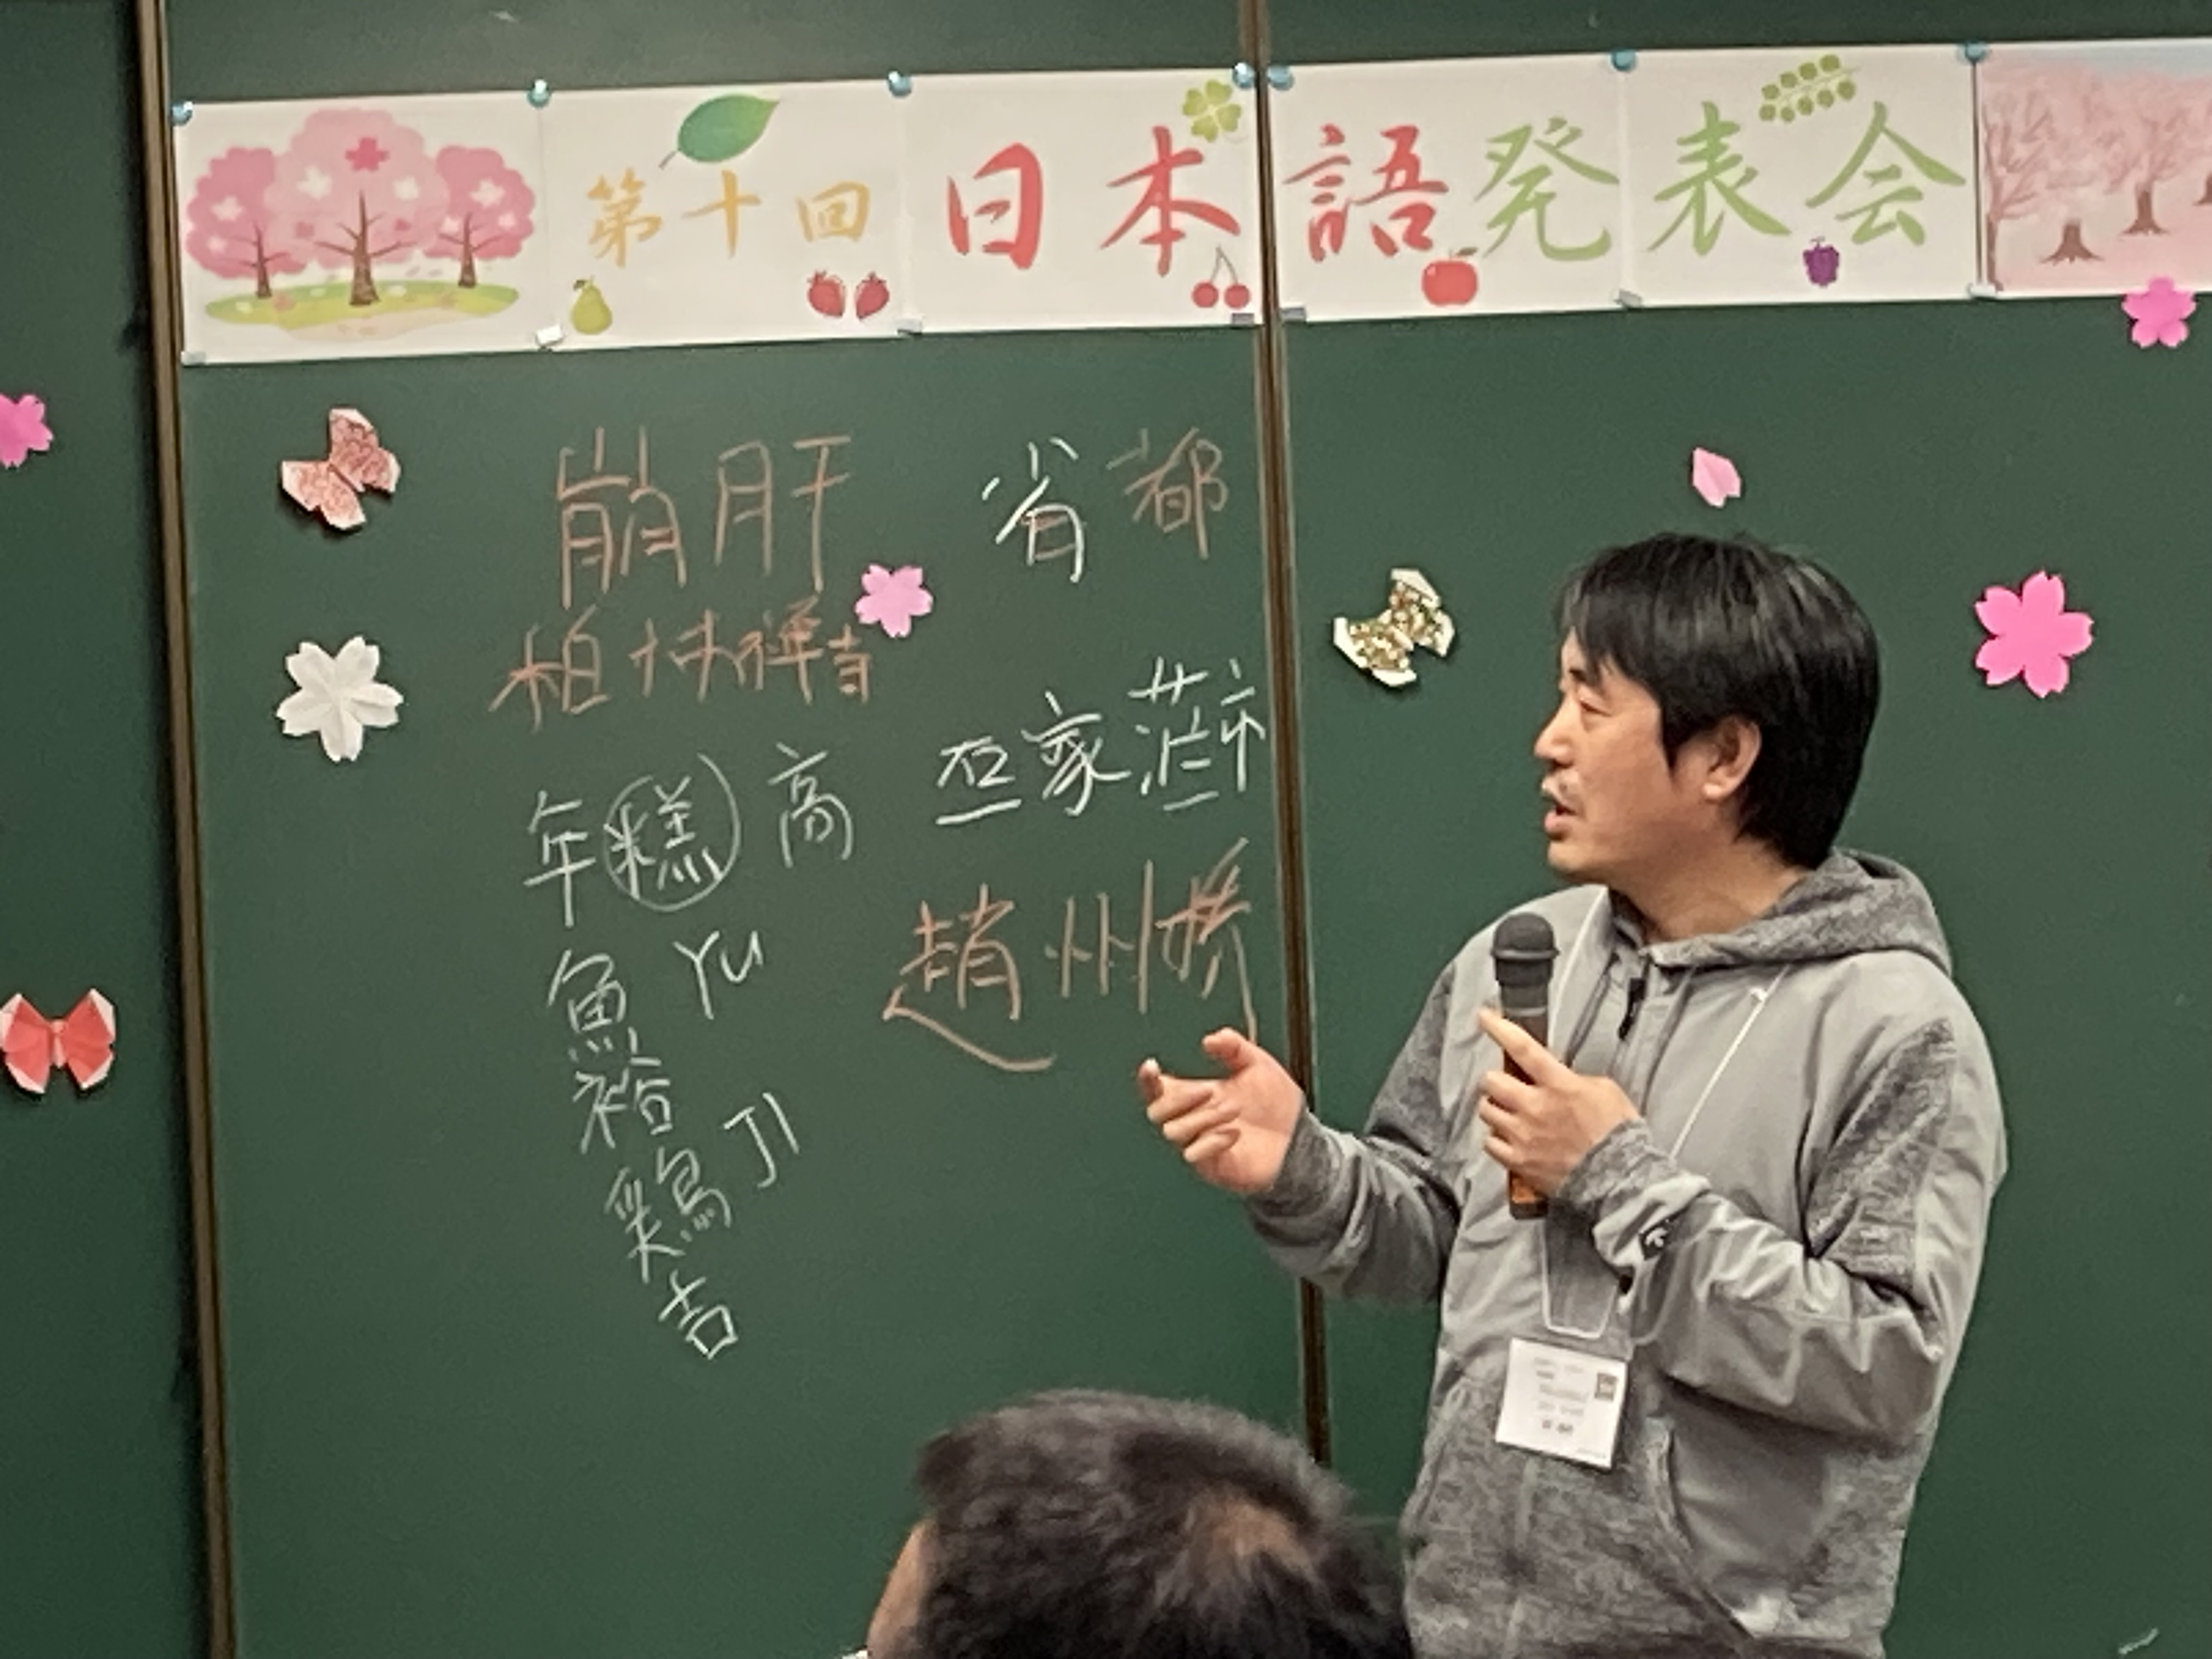 第十回 日本語発表会
崩肝 省都
柏林禅寺
石家荘市
年糕 高
趙州橋
魚 YU
裕
鶏 JI
吉